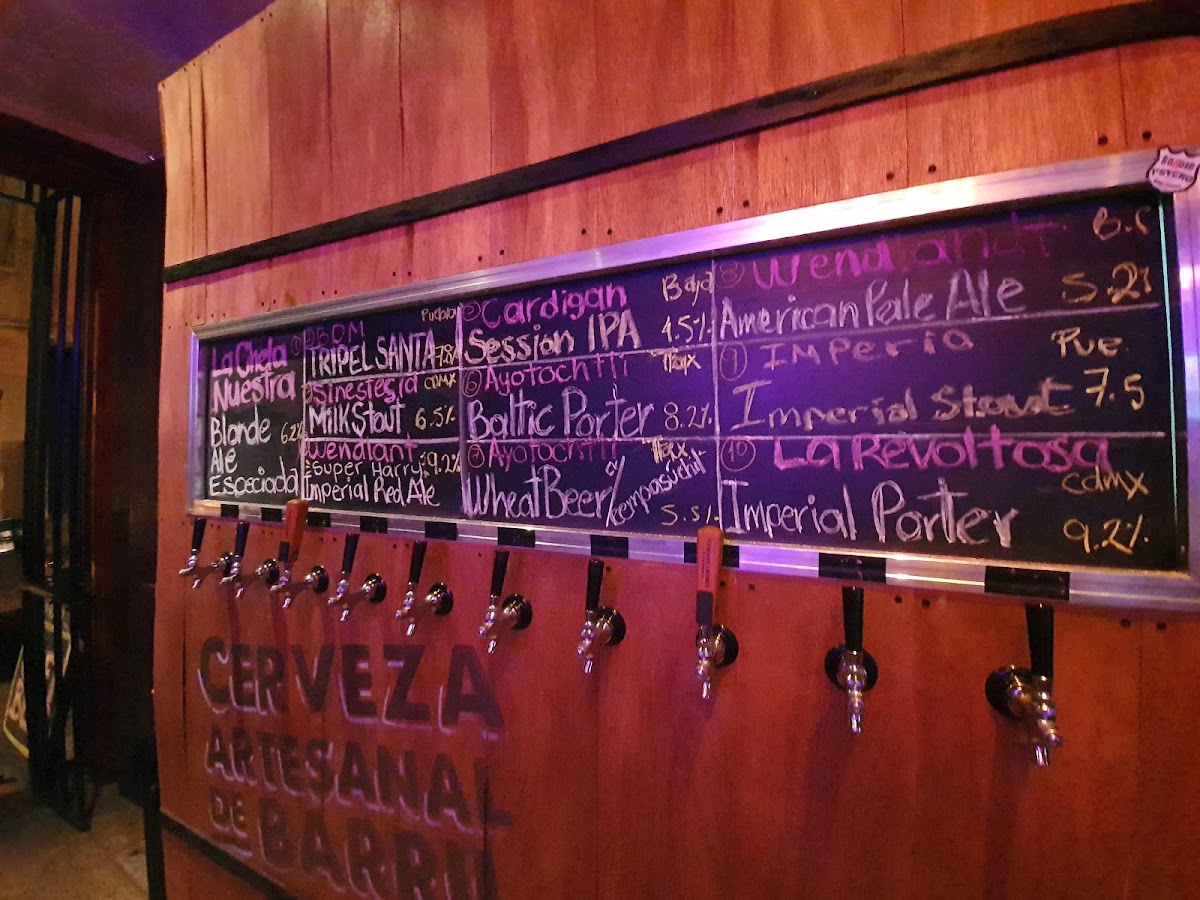 La Chela
Nuestra
Blonde 6.2%
Ale
Especiada
Puebla
TRIPEL SANTA 7.8%
Sinestesia CDMX
Milk Stout 6.5%
Wendlant
Super Harry 9.2%
Imperial Red Ale
Cardigan Baja
Session IPA 4.5%
⑥ Ayotochtli Tlax
Baltic Porter 8.2%
Ayotochtli Tlax
Wheat Beer c/ cempasúchil
5.5%
⑧ Wendlandt B.C
American Pale Ale 5.2%
⑨ IMPERIA Pue.
Imperial Stout 7.5
⑩ La Revoltosa
cdmx
Imperial Porter 9.2%
PSYCHO
CERVEZA
ARTESANAL
DE BARRIL